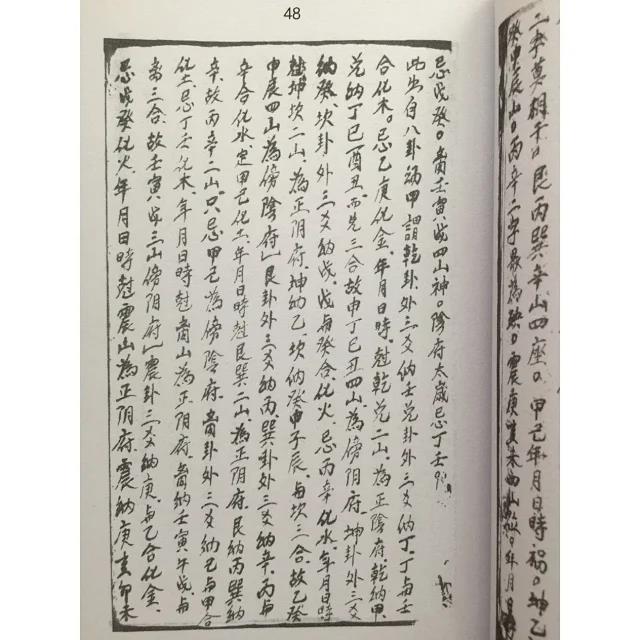 二字莫相干。艮丙巽辛山四座。甲己年月日時禍。坤乙
癸申辰山。丙辛二字最為殃。震庚亥未四山。年月
48
忌戊癸。离壬寅戌四山神。陰府太歲忌丁壬
此出自八卦納甲謂乾卦外三爻納壬兌卦外三爻納丁。丁与壬
合化木。忌乙庚化金。年月日時。尅乾兌二山。為正陰府。乾納甲
兌納丁巳酉丑。而先三合故甲丁巳丑四山為傍陰府。坤卦外三爻
納癸。坎卦外三爻納戊。戊与癸合化火。忌丙辛化水。年月日時
尅坤坎二山。為正阴府。坤納乙。坎納癸申子辰。与坎三合。故乙癸
申辰四山為傍陰府」艮卦外三爻納丙。巽卦外三爻納辛。丙与
辛合化水。定甲己化土。年月日時尅艮巽二山。為正阴府。艮納丙巽納
辛。故丙辛二山。只忌甲己為傍陰府。离卦外三爻納己与甲合
化土忌丁壬化木。年月日時尅离山為正阴府。离納壬寅午戌。与
离三合。故壬寅戌三山傍阴府」震卦三爻納庚。与乙合化金。
忌戊癸化火。年月日時尅震山為正阴府。震納庚亥卯未